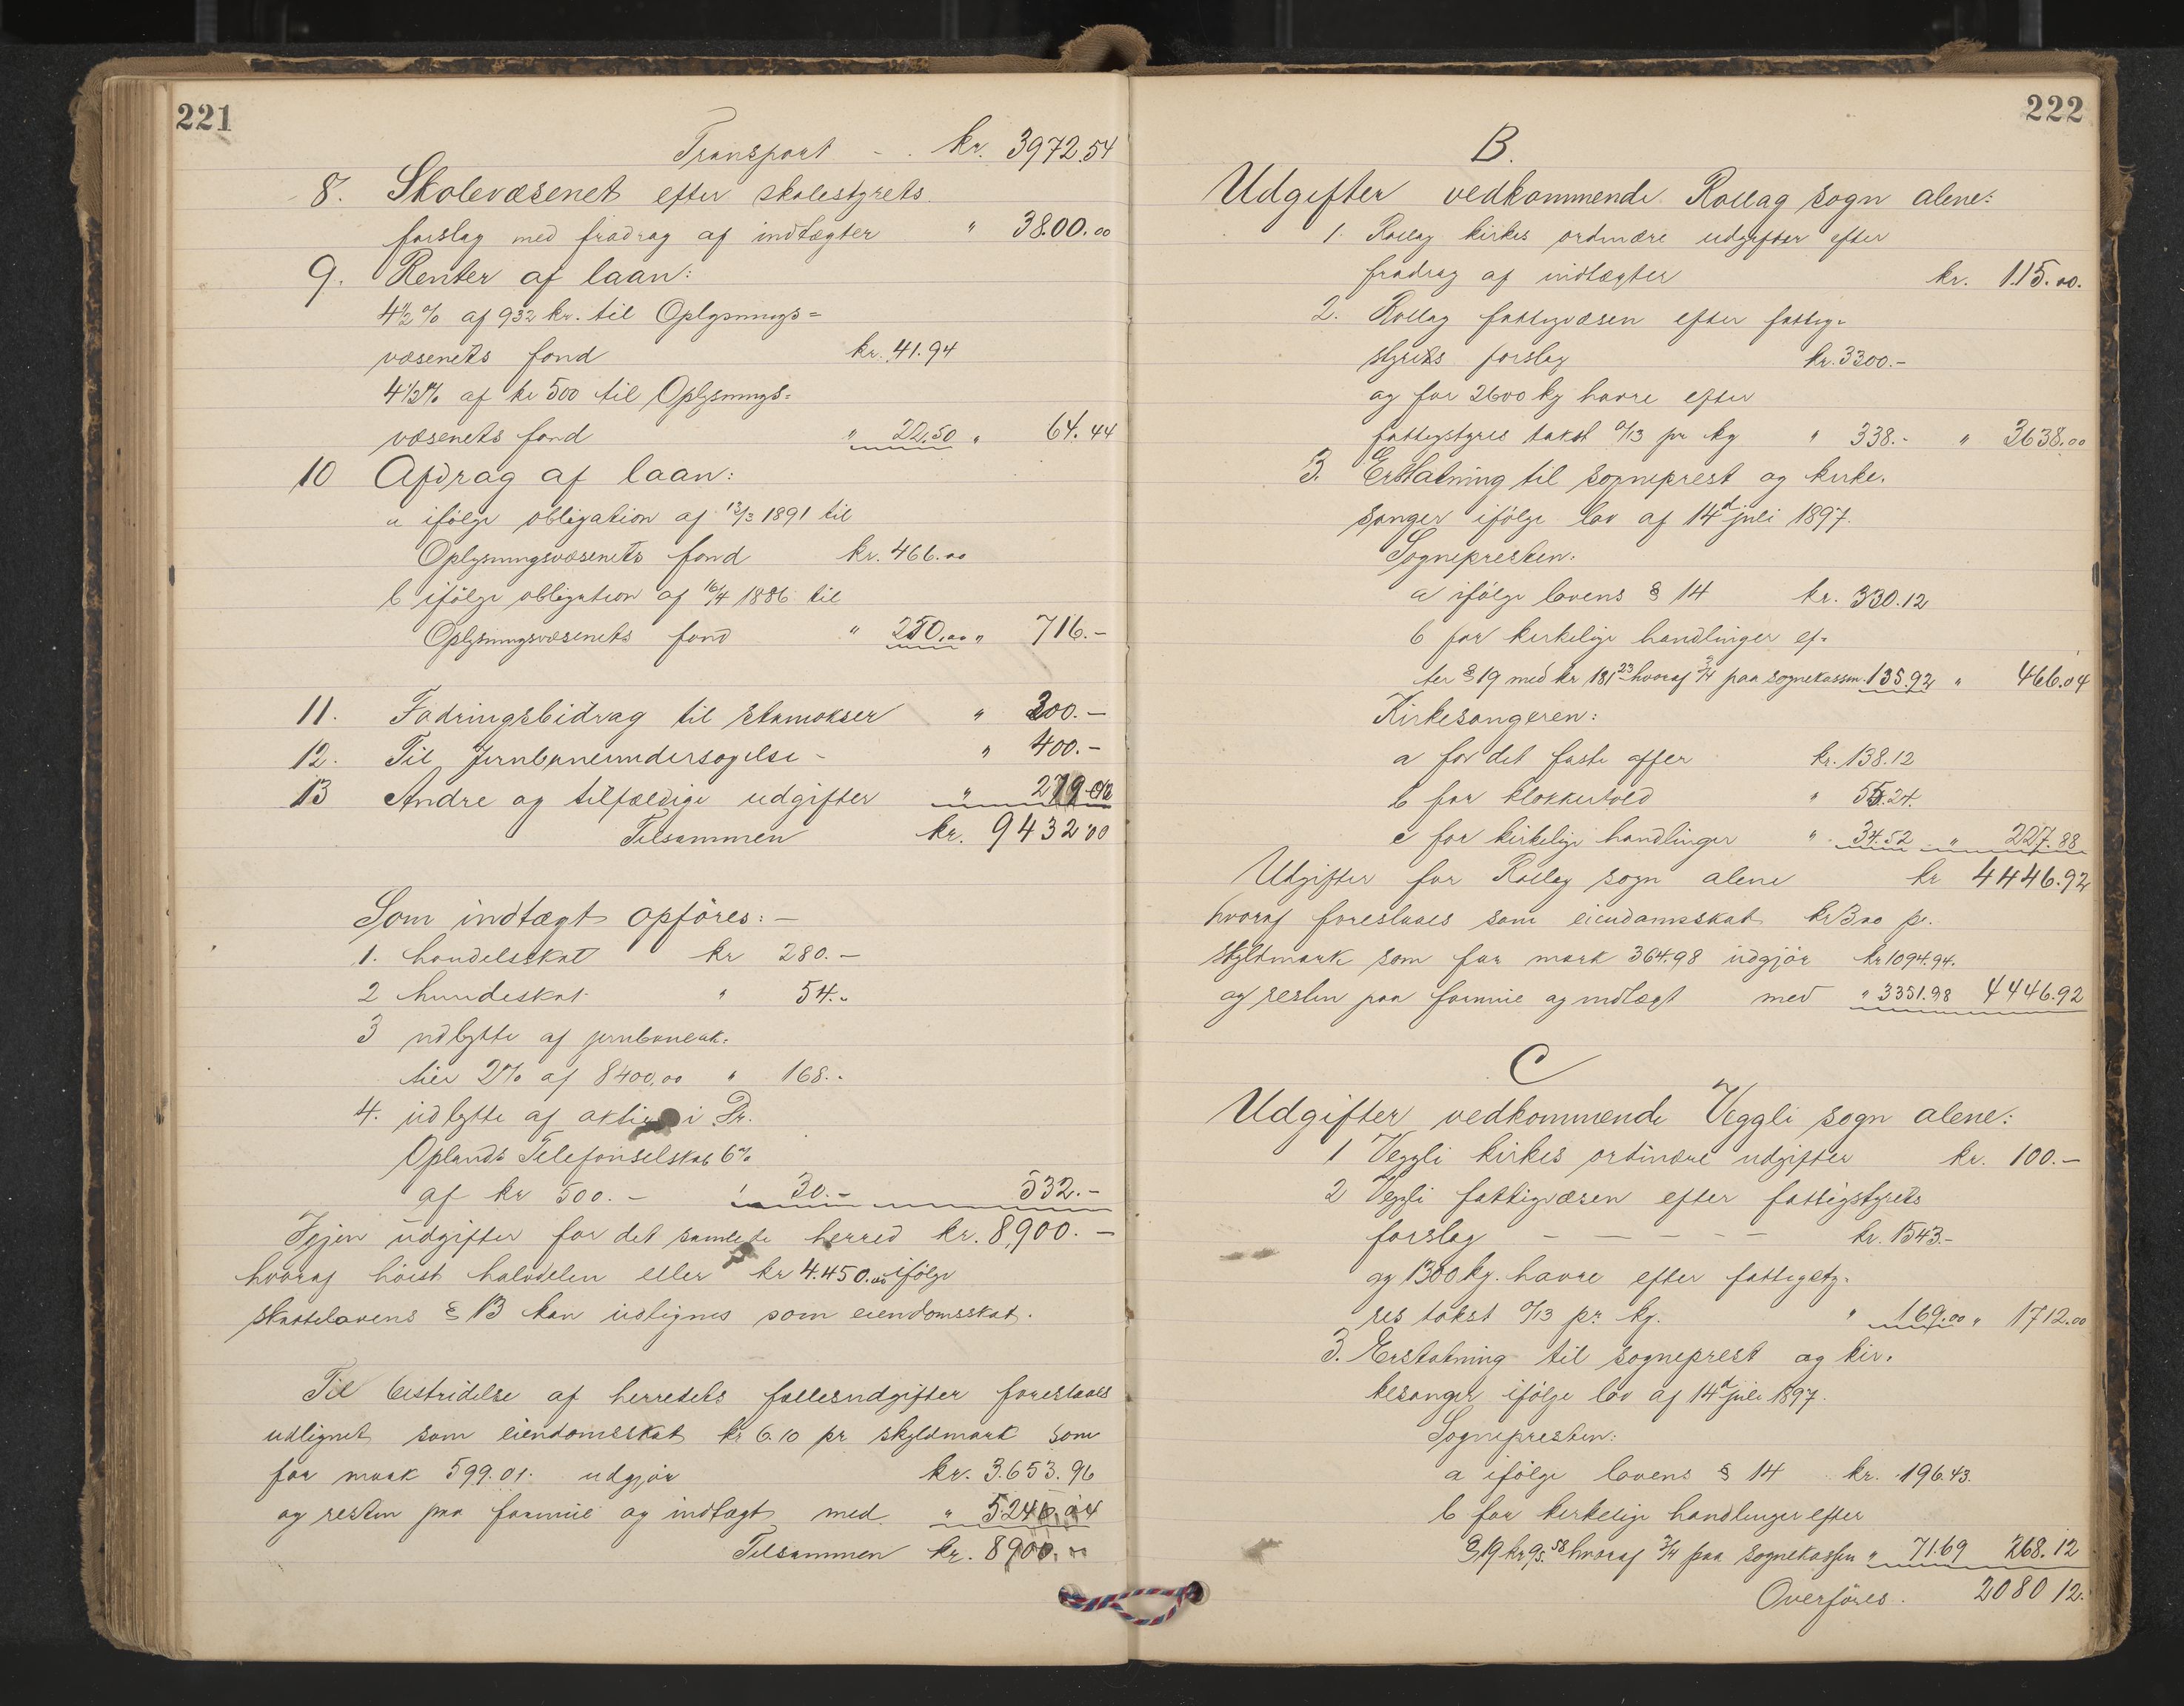 221
Transport - . kr. 3972.54
8. Skolevæsenet efter skolestyrets
forslag med fradrag af indtægter " 38.00.00
9. Renter af laan:
4½ % af 932 kr. til Oplysnings=
væsenets fond kr. 41.94
4½% af kr 500 til Oplysnings=
væsenets fond " 22.50 " 64.44
10 Afdrag af laan:
a ifölge obligation af 12/3 1891 til
Oplysningsvæsenets fond kr. 466.00
b ifölge obligation af 16/4 1886 til
Oplysningsvæsenets fond " 250.00 " 716.-
11. Fodringsbidrag til stamokser " 200.-
12. Til Jernbaneundersøgelse - " 400.-
13 Andre og tilfældige udgifter " 279.02
Tilsammen kr. 9432.00
Som indtægt opföres: -
1. handelsskat kr 280.-
2 hundeskat " 54.-
3 udbytte af jernbaneak=
tier 2% af 8400,00 " 168.-
4. udbytte af aktier i Dr.
Oplands Telefonselskab 6%
af kr 500.- " 30.- 532.-
Igjen udgifter for det samlede herred kr. 8,900.-
hvoraf höist halvdelen eller kr 4.450.00 ifölge
skattelovens § 13 kan udlignes som eiendomsskat.
Til bestridelse af herredets fællesudgifter foreslaaes
udlignet som eiendomsskat kr 6.10 pr skyldmark som
for mark 599.01. udgjör kr. 3.653.96
og resten paa formue og indtægt med " 5246.04
Tilsammen kr. 8900.00
222
B.
Udgifter vedkommende Rollag sogn alene:
1. Rollag kirkes ordinære udgifter efter
fradrag af indtægter kr. 115.00.
2. Rollag fattigvæsen efter fattig=
styrets forslag kr. 3300.-
og for 2600 kg havre efter
fattigstyres takst 0/13 pr kg " 338.- " 3638.00
3. Erstatning til sogneprest og kirke=
sanger ifölge lov af 14d juli 1897.
Sognepresten:
a ifölge lovens § 14 kr. 330.12
b for kirkelige handlinger ef=
ter § 19 med kr 181.23 hvoraf 3/4 paa sognekassen 135.92 " 466.04
Kirkesangeren:
a for det faste offer kr. 138.12
b for klokkertold " 55.24.
c for kirkelige handlinger " 34.52 " 227.88
Udgifter for Rollag sogn alene kr 4446.92
hvoraf foreslaaes som eiendomsskat kr 3.00 pr.
skyldmark som for mark 364.98 udgjör kr 1094.94.
og resten paa formue og indtægt med " 3351.98 4446.92
C
Udgifter vedkommende Veggli sogn alene:
1 Veggli kirkes ordinære udgifter kr. 100.-
2 Veggli fattigvæsen efter fattigstyrets
forslag - - - - - - kr. 1543.-
og 1300 kg. havre efter fattigsty=
res takst 0/13 pr. kg. " 169.00 " 1712.00
3. Erstatning til sogneprest og kir=
kesanger ifölge lov af 14d juli 1897.
Sognepresten:
a ifölge lovens § 14 kr. 196.43.
b for kirkelige handlinger efter
§ 19 kr 95.58 hvoraf 3/4 paa sognekassen " 71.69 268.12
Overföres. 2080 12.